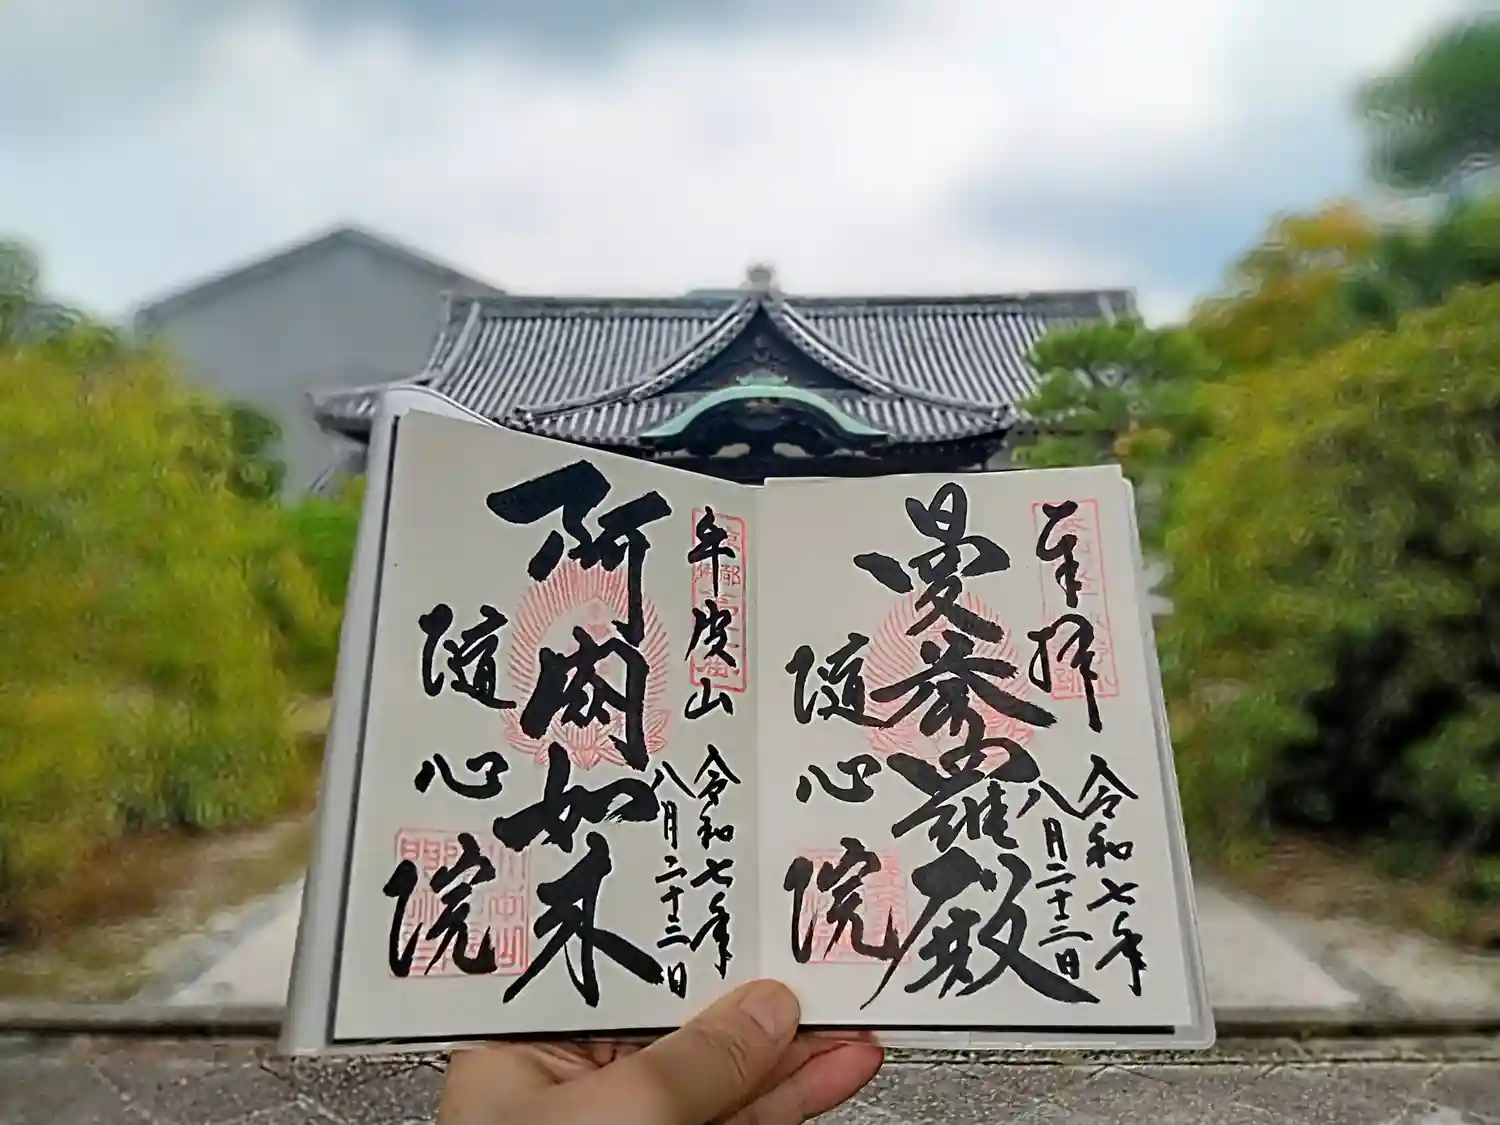 奉拝
令和七年
八月二十三日
曼荼羅殿
随心院
牛皮山
令和七年
八月二十三日
阿閦如来
随心院